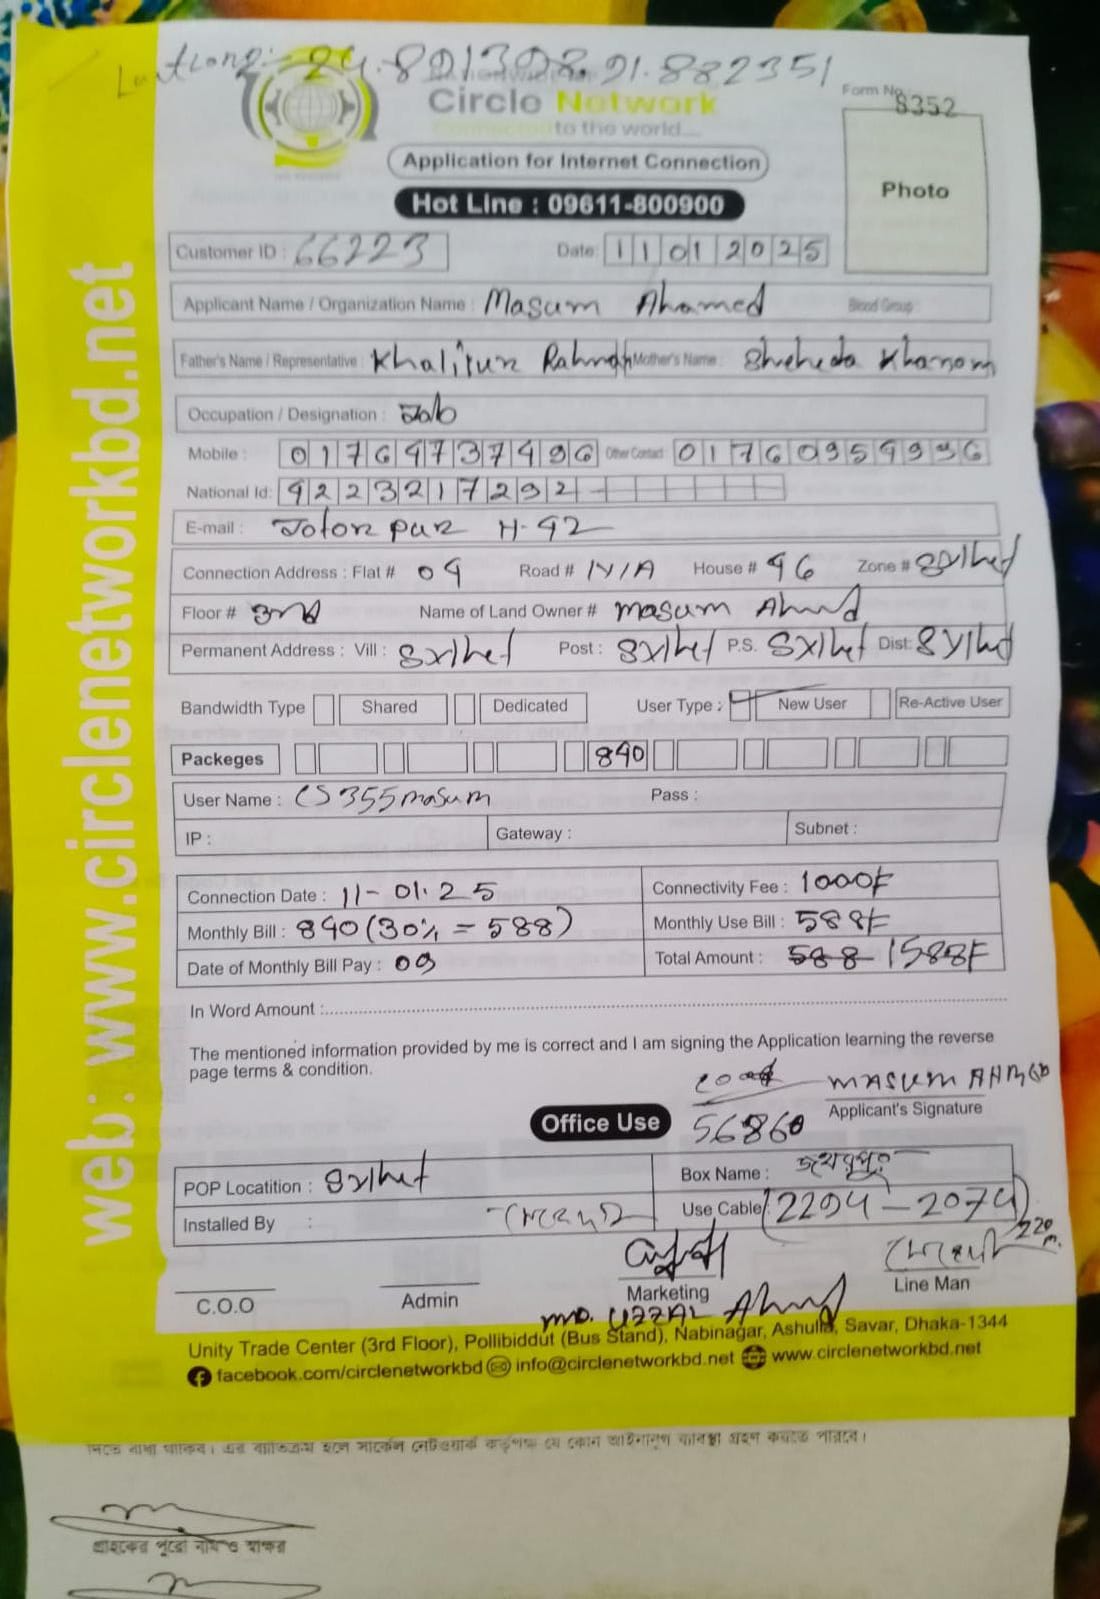 Lat Long:- 24.891398.91.882351
Circle Network
Connected to the world....
Form No. 8352
Application for Internet Connection
Photo
Hot Line : 09611-800900
Customer ID : 66223 Date: 11012025
Applicant Name / Organization Name : Masum Ahamed Blood Group :
Father's Name / Representative : Khalilur Rahman Mother's Name : Shaheda Khanom
Occupation / Designation : Job
Mobile : Other Contact :
National Id:
E-mail : H-92
Connection Address : Flat # 04 Road # House # 46 Zone # Sylhet
Floor # 3rd Name of Land Owner # Masum Ahmed
Permanent Address : Vill : Sylhet Post : Sylhet P.S. Sylhet Dist: Sylhet
Bandwidth Type Shared Dedicated User Type : New User Re-Active User
Packeges 840
User Name : CS355masum Pass :
IP : Gateway : Subnet :
Connection Date : 11-01.25 Connectivity Fee : 1000/-
Monthly Bill : 840 (30% = 588) Monthly Use Bill : 588/-
Date of Monthly Bill Pay : 09 Total Amount : 588 1588/-
In Word Amount :
The mentioned information provided by me is correct and I am signing the Application learning the reverse
page terms & condition.
MASUM AHMED
Office Use 56860 Applicant's Signature
POP Locatition : Sylhet Box Name :
Installed By : Use Cable : (2294-2074)
220m.
C.O.O Admin Marketing Line Man
MD. UZZAL Ahmed
Unity Trade Center (3rd Floor), Pollibiddut (Bus Stand), Nabinagar, Ashulia, Savar, Dhaka-1344
facebook.com/circlenetworkbd info@circlenetworkbd.net www.circlenetworkbd.net
web: www.circlenetworkbd.net
দিতে বাধ্য থাকিব। এর ব্যতিক্রম হলে সার্কেল নেটওয়ার্ক কর্তৃপক্ষ যে কোন আইনানুগ ব্যবস্থা গ্রহণ করতে পারবে।
গ্রাহকের পুরো নাম ও স্বাক্ষর